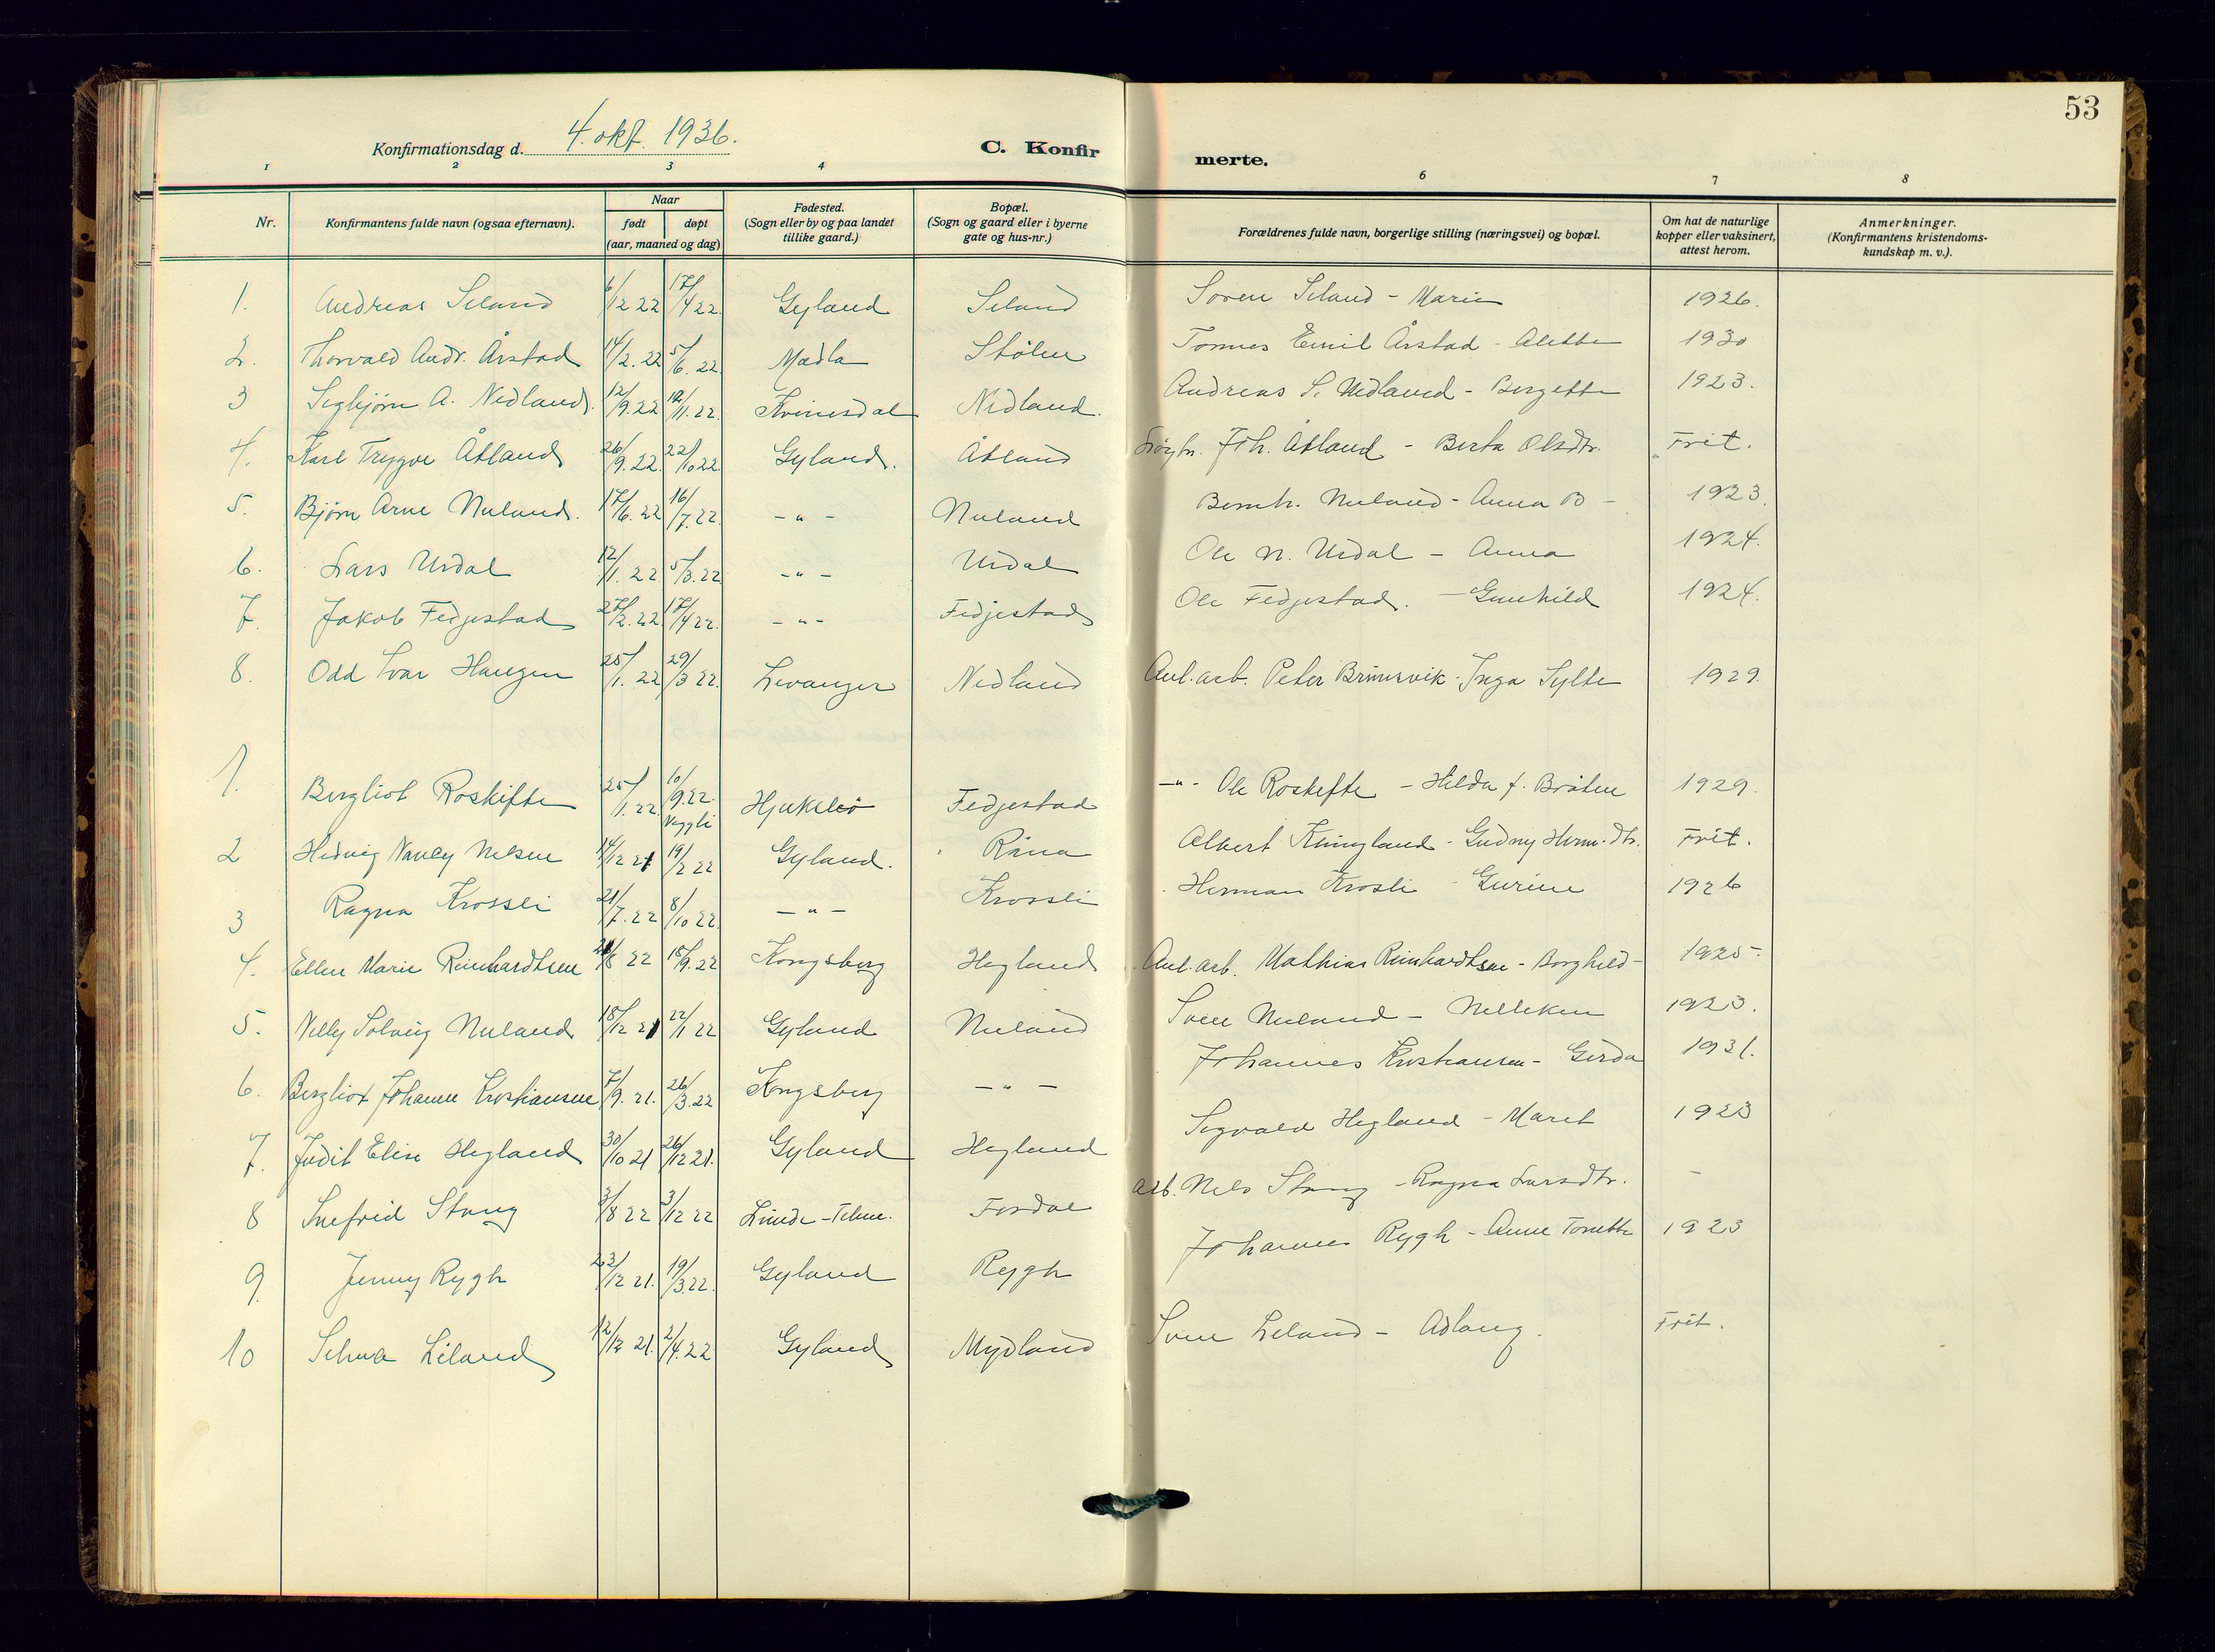 53
Konfirmationsdag d. 4. okt. 1936.
C. Konfir
merte.
1 2 3 4 6 7 8
Nr.
Konfirmantens fulde navn (ogsaa efternavn).
Naar
født døpt
(aar, maaned og dag)
Fødested.
(Sogn eller by og paa landet
tillike gaard.)
Bopæl.
(Sogn og gaard eller i byerne
gate og hus-nr.)
Forældrenes fulde navn, borgerlige stilling (næringsvei) og bopæl.
Om hat de naturlige
kopper eller vaksinert,
attest herom.
Anmerkninger.
(Konfirmantens kristendoms-
kundskap m. v.).
1. Andreas Seland 6/12 22 17/4 22. Gyland Seland Soren Seland - Marie 1926.
2. Thorvald Andr. Årstad 14/2. 22 5/6. 22. Madla Stølen Tomes Emil Årstad - Alette 1930
3 Segbjørn A. Nedland. 12/9. 22 12/11. 22. Kvinesdal Nedland. Andreas S. Nedland - Bergette 1923.
4. Karl Trygve Åtland 26/9. 22. 22/10 22 Gyland. Åtland Joh. Åtland - Berta Olsdtr. Frit.
5. Bjørn Arne Nuland. 17/6. 22 16/7. 22. - " - Nuland Bernh. Nuland - Anna B - 1923.
6. Lars Urdal 12/1. 22 5/3. 22 - " - Urdal Ole N. Urdal - Anna 1924.
7. Jakob Fedjestad 27/2. 22. 17/4 22. - " - Fedjestad Ole Fedjestad. - Gunhild 1924.
8. Odd Ivar Haugen 25/1. 22 29/3 22. Levanger Nedland Anl. arb. Peter Brunsvik - Inga Sylte 1929.
1. Bergliot Roskifte 25/1. 22. 10/9. 22. Veggli Fedjestad - " - Ole Roskifte - Hilda f. Bråten 1929.
2 Hedvig Nancy Nelsen 14/12 21 19/2 22 Gyland. Råna Albert Klungland - Gudny Herm. dtr. Frit.
3 Ragna Krossli 21/7. 22 8/10 22. - " - Krossli Herman Krosli - Gurine 1926
4. Ellen Marie Reinhardtsen 21/8 22 18/9. 22 Kongsberg Hegland Anl. arb. Mathias Reinhardtsen - Borghild - 1925.
5. Nelly Solveig Nuland 18/12 21 22/1 22 Gyland Nuland Sven Nuland - Nelleken 1923.
6. Bergliot Johanne Kristiansen 7/9. 21. 26/3. 22 Kongsberg - " - Johannes Kristiansen - Gerda 1931.
7. Judit Elise Hegland 30/10 21 26/12 21. Gyland Hegland Segvald Hegland - Marit 1923
8 Snefrid Stang 3/8 22 3/12 22 Lunde - Telem. Fosdal arb. Nels Stang - Ragna Larsdtr. -
9. Jenny Rygh 23/12 21. 19/3. 22. Gyland Rygh Johannes Rygh - Anne Tonette 1923
10 Selma Leland 12/12 21. 2/4. 22 Gyland Mydland Sven Leland - Adlaug. Frit.